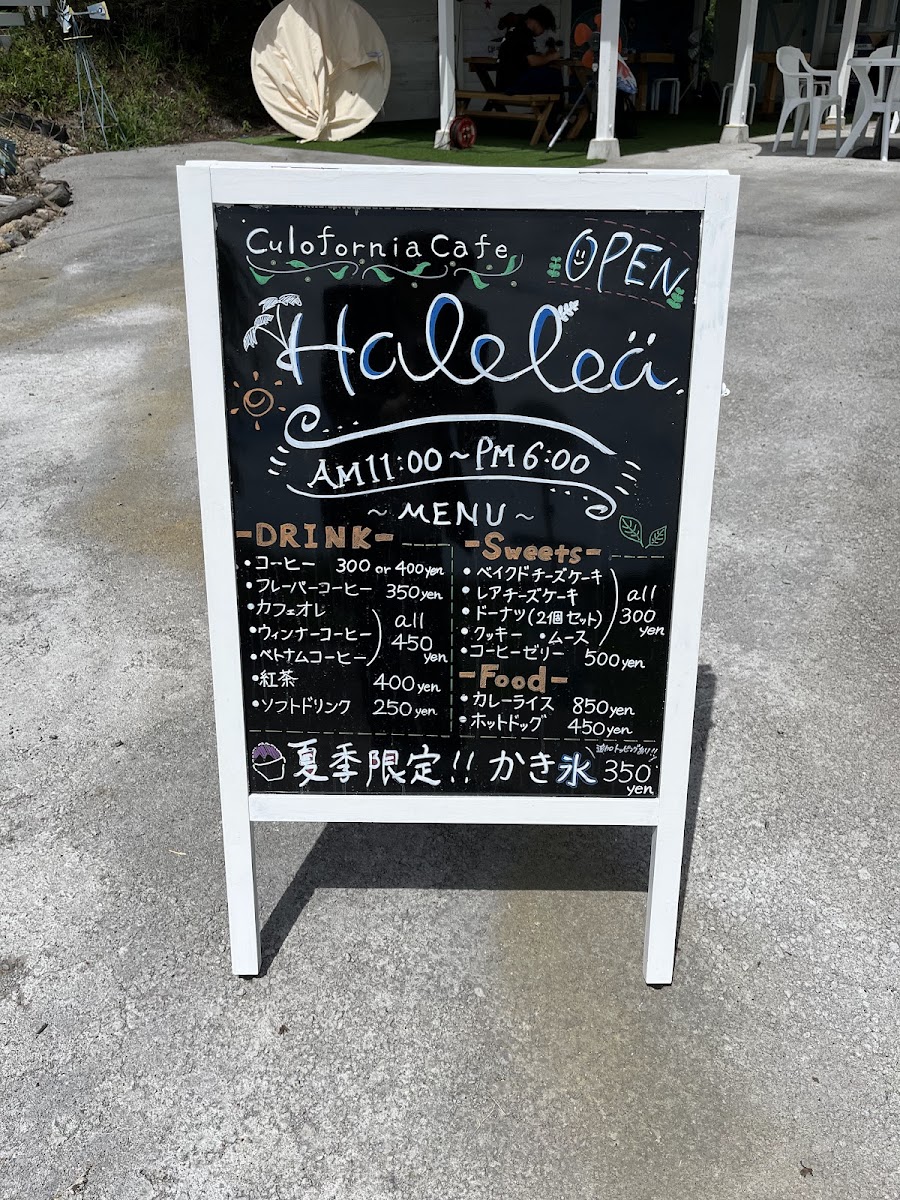 Culofornia Cafe
OPEN
Haleleä
AM11:00~PM6:00
~MENU~
-DRINK-
・コーヒー 300 or 400yen
・フレーバーコーヒー 350yen
・カフェオレ
・ウィンナーコーヒー
・ベトナムコーヒー
all
450
yen
・紅茶 400yen
・ソフトドリンク 250yen
-Sweets-
・ベイクドチーズケーキ
・レアチーズケーキ
・ドーナツ(2個セット)
・クッキー ・ムース
all
300
yen
・コーヒーゼリー 500yen
-Food-
・カレーライス 850yen
・ホットドッグ 450yen
夏季限定!! かき氷 350
yen
追加トッピング有り!!